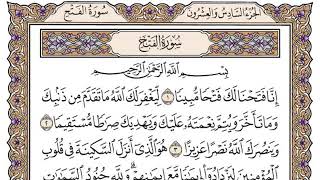 الجزء السادس والعشرون
سورة الفتح
سورة الفتح
بِسْمِ اللَّهِ الرَّحْمَٰنِ الرَّحِيمِ
إِنَّا فَتَحْنَا لَكَ فَتْحًا مُّبِينًا ١ لِّيَغْفِرَ لَكَ اللَّهُ مَا تَقَدَّمَ مِن ذَنۢبِكَ
وَمَا تَأَخَّرَ وَيُتِمَّ نِعْمَتَهُ عَلَيْكَ وَيَهْدِيَكَ صِرَاطًا مُّسْتَقِيمًا ٢
وَيَنصُرَكَ اللَّهُ نَصْرًا عَزِيزًا ٣ هُوَ الَّذِي أَنزَلَ السَّكِينَةَ فِي قُلُوبِ
الْمُؤْمِنِينَ لِيَزْدَادُوا إِيمَانًا مَّعَ إِيمَانِهِمْ وَلِلَّهِ جُنُودُ السَّمَاوَاتِ